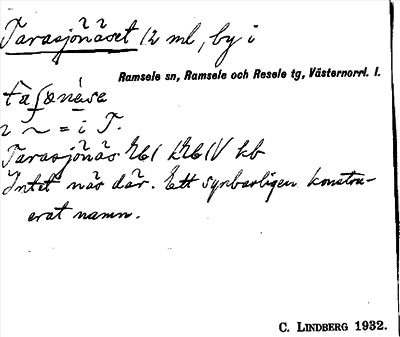 Tarasjönäset 12 ml, by i
Ramsele sn, Ramsele och Resele tg, Västernorrl. l.
2 ~ = i T.
Tarasjönäs kb
Intet näs där. Ett synbarligen konstru-
erat namn.
C. LINDBERG 1932.